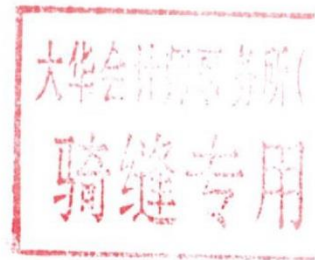 大华会计师事务所(
骑缝专用